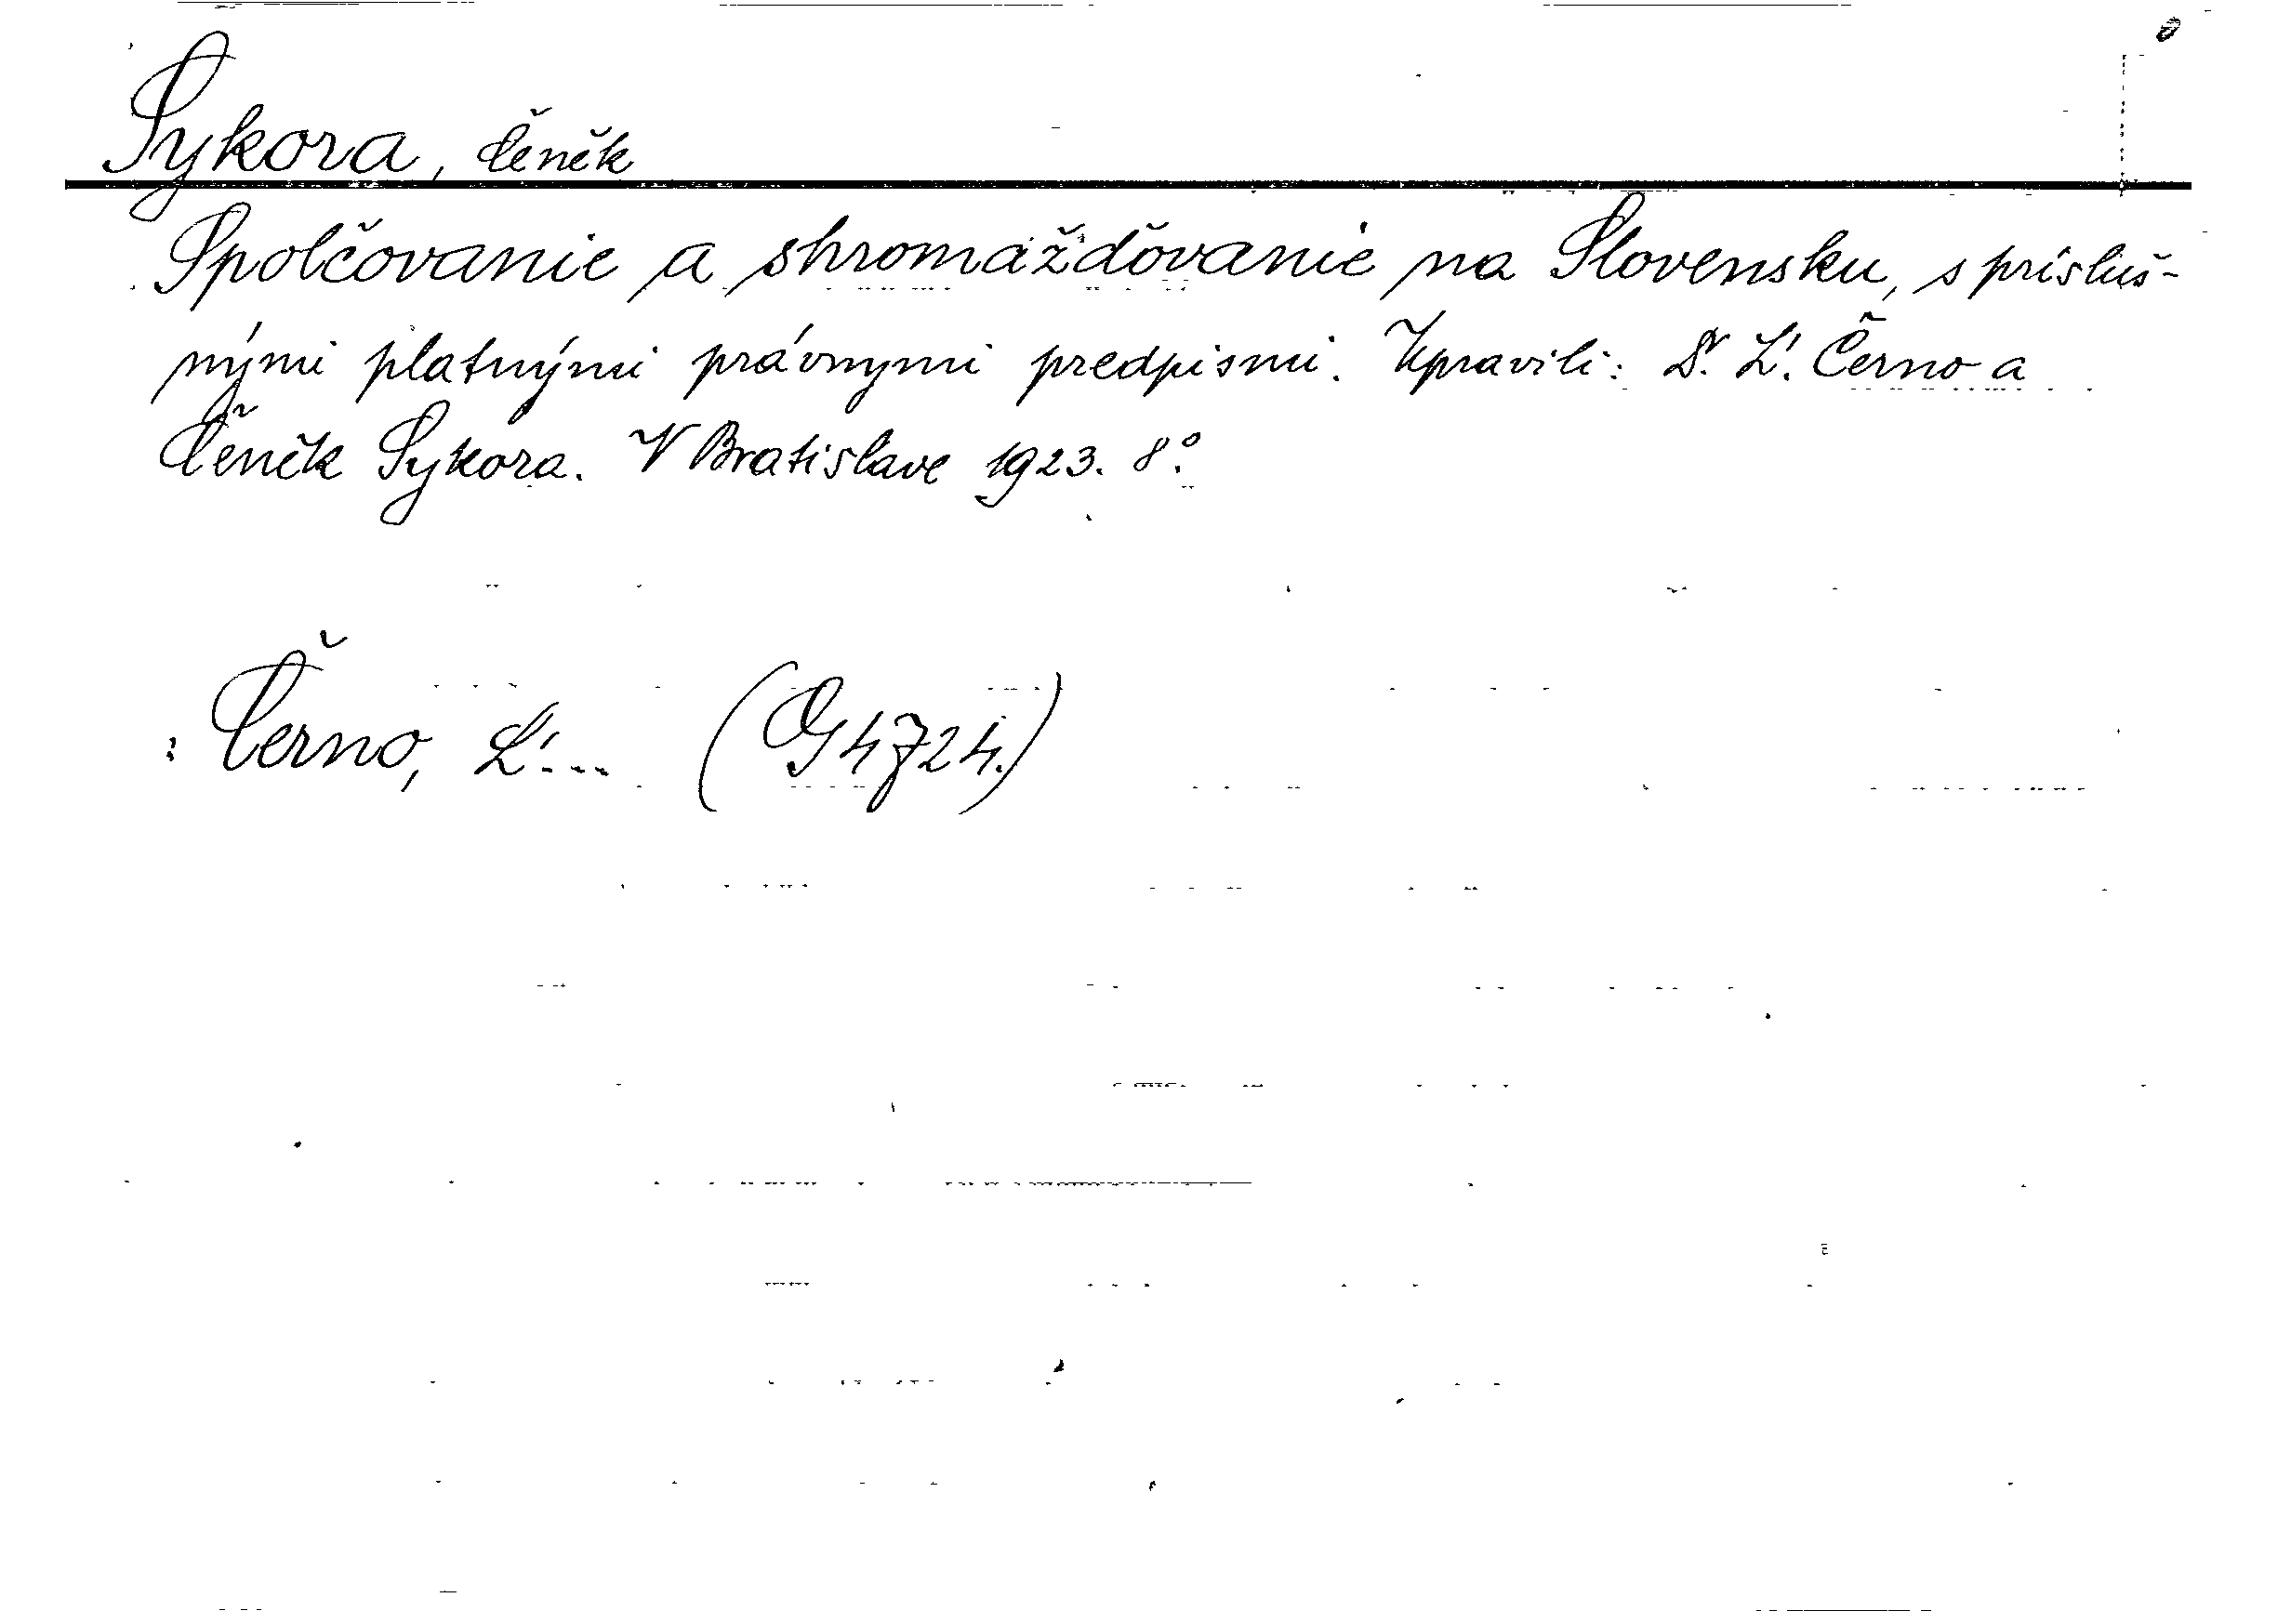 Sykora, Čeněk
Spolčovanie a shromažďovanie na Slovensku, s prísluš-
nými platnými právnymi predpismi. Upravili: Dr. Ľ. Černo a
Čeněk Sykora. V Bratislave 1923. 8°.
: Černo, Ľ... (G 4724.)